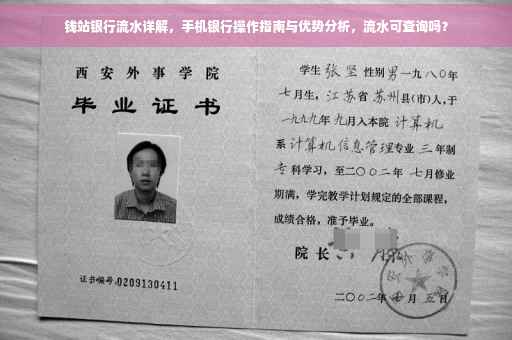 钱站银行流水详解，手机银行操作指南与优势分析，流水可查询吗？
西安外事学院
毕业证书
证书编号:0209130411
学生 张坚 性别 男 一九八〇年
七月生，江苏省 苏州 县(市)人,于
一九九九年 九月入本院 计算机
系 计算机信息管理 专业 三 年制
专 科学习，至二〇〇二年 七月修业
期满，学完教学计划规定的全部课程，
成绩合格，准予毕业。
院长
二〇〇二年 七月 五日